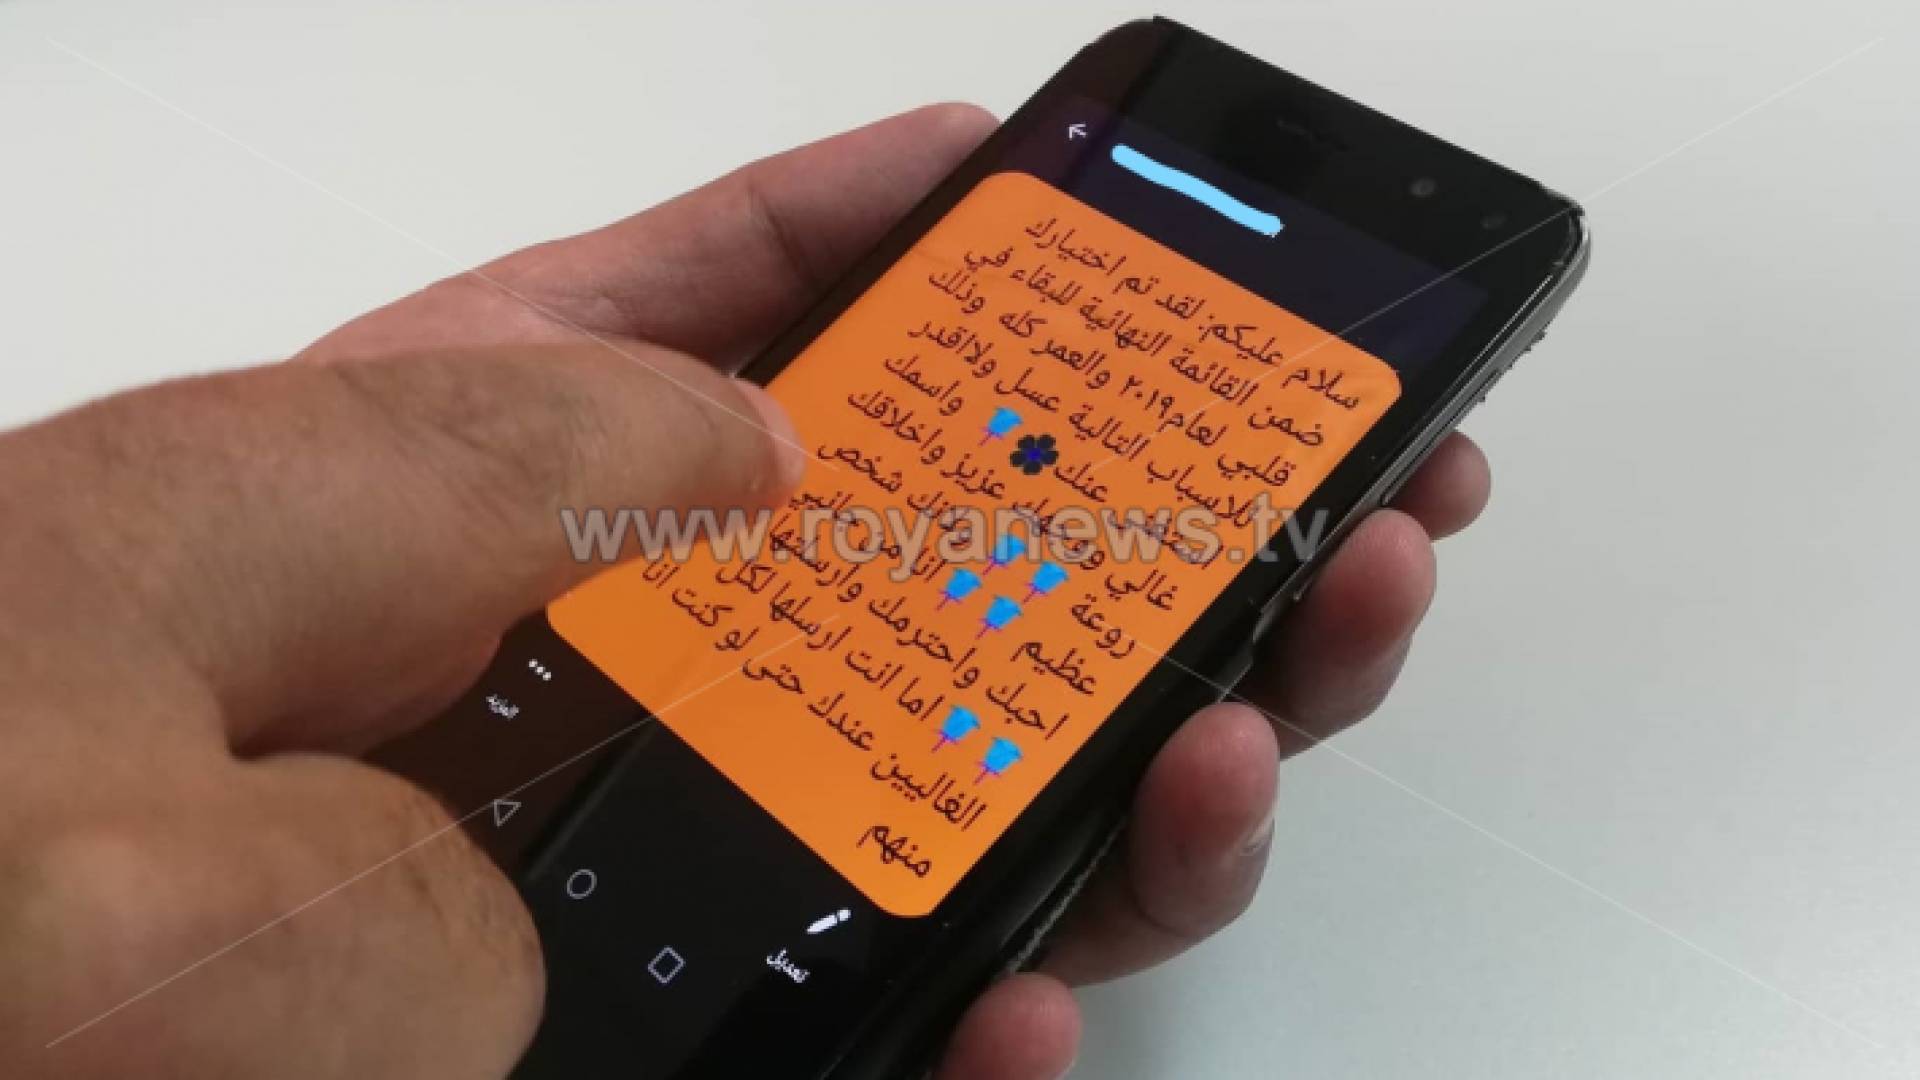 سلام عليكم: لقد تم اختيارك
ضمن القائمة النهائية للبقاء في
قلبي لعام٢٠١٩ والعمر كله وذلك
للاسباب التالية عسل ولااقدر
استغني عنك🌹 واسمك
غالي ووجهك عزيز واخلاقك
روعة ولانك شخص
عظيم انا من جانبي
احبك واحترمك وارسلتها
اما انت ارسلها لكل
الغاليين عندك حتى لو كنت انا
منهم
المزيد
تعديل
www.royanews.tv